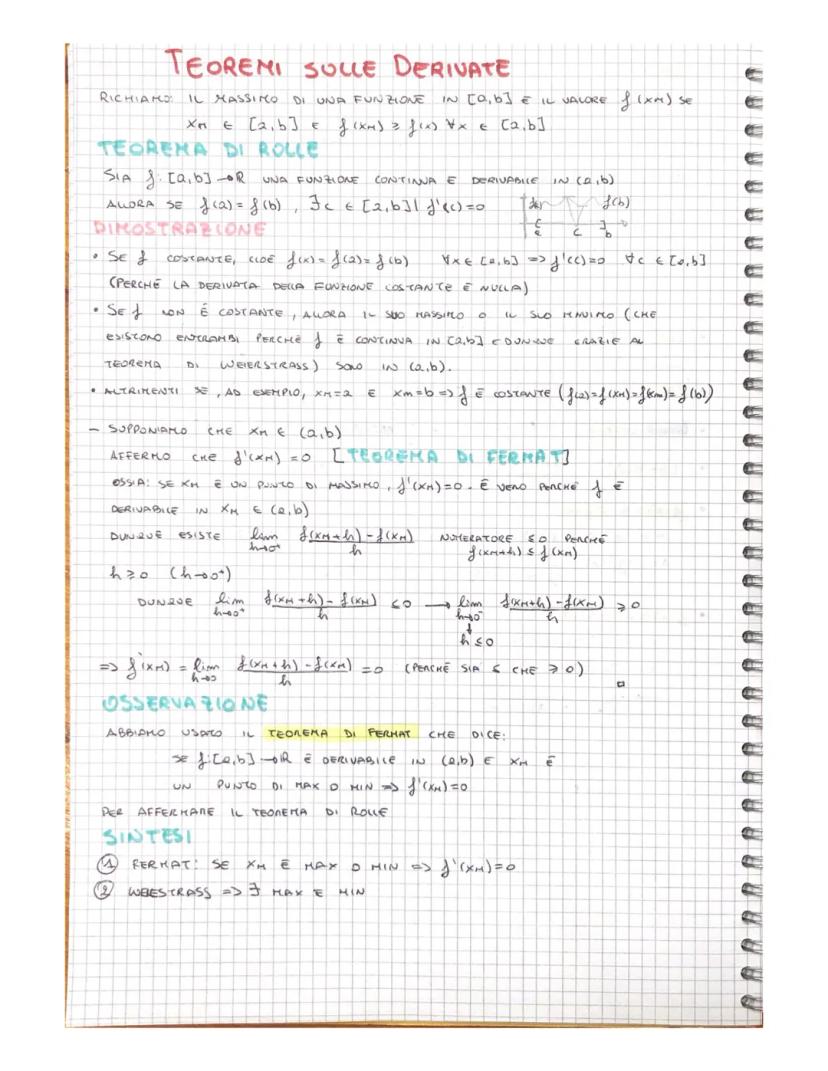 TEOREMI SULLE DERIVATE
RICHIAMO: IL MASSIMO DI UNA FUNZIONE IN [a,b] È IL VALORE f(xM) SE
xM ∈ [a,b] E f(xM) ≥ f(x) ∀x ∈ [a,b]
TEOREMA DI ROLLE
SIA f: [a,b] → R UNA FUNZIONE CONTINUA E DERIVABILE IN (a,b)
ALLORA SE f(a) = f(b), ∃c ∈ [a,b] | f'(c) = 0
f(b)
c b
DIMOSTRAZIONE
• SE f COSTANTE, CIOÈ f(x) = f(a) = f(b) ∀x ∈ [a,b] => f'(c) = 0 ∀c ∈ [a,b]
(PERCHÉ LA DERIVATA DELLA FUNZIONE COSTANTE È NULLA)
• SE f NON È COSTANTE, ALLORA IL SUO MASSIMO O IL SUO MINIMO (CHE
ESISTONO ENTRAMBI PERCHÉ f È CONTINUA IN [a,b] E DUNQUE GRAZIE AL
TEOREMA DI WEIERSTRASS) SONO IN (a,b).
• ALTRIMENTI SE, AD ESEMPIO, xM = a E xm = b => f È COSTANTE (f(a) = f(xM) = f(xm) = f(b))
– SUPPONIAMO CHE xM ∈ (a,b)
AFFERMO CHE f'(xM) = 0 [TEOREMA DI FERMAT]
OSSIA: SE xM È UN PUNTO DI MASSIMO, f'(xM) = 0. È VERO PERCHÉ f È
DERIVABILE IN xM ∈ (a,b)
DUNQUE ESISTE lim h→0⁺ f(xM+h) - f(xM) / h NUMERATORE ≤ 0 PERCHÉ
f(xM+h) ≤ f(xM)
h ≥ 0 (h→0⁺)
DUNQUE lim h→0⁺ f(xM+h) - f(xM) / h ≤ 0 → lim h→0⁻ f(xM+h) - f(xM) / h ≥ 0
↓
h ≤ 0
=> f'(xM) = lim h→0 f(xM+h) - f(xM) / h = 0 (PERCHÉ SIA ≤ CHE ≥ 0)
□
OSSERVAZIONE
ABBIAMO USATO IL TEOREMA DI FERMAT CHE DICE:
SE f: [a,b] → R È DERIVABILE IN (a,b) E xM È
UN PUNTO DI MAX O MIN => f'(xM) = 0
PER AFFERMARE IL TEOREMA DI ROLLE
SINTESI
① FERMAT: SE xM È MAX O MIN => f'(xM) = 0
② WEIESTRASS => ∃ MAX E MIN